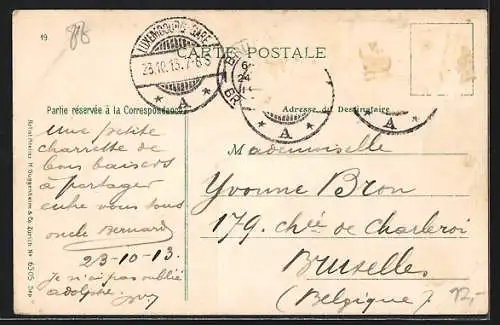 19
LUXEMBOURG-GARE
CARTE POSTALE
23.10.13.7-8S
6
24
A
Partie réservée à la Correspondance
Adresse du Destinataire
A
A
Une petite
charrette de
bons baisers
à partager
entre vous tous
oncle Bernard
23-10-13
Je n'ai pas oublié
adolphe
Mademoiselle
Yvonne Bron
179. chée de Charleroi
Bruxelles
(Belgique)
12,-
H. Guggenheim & Co. Zürich Nr 6505 Dep